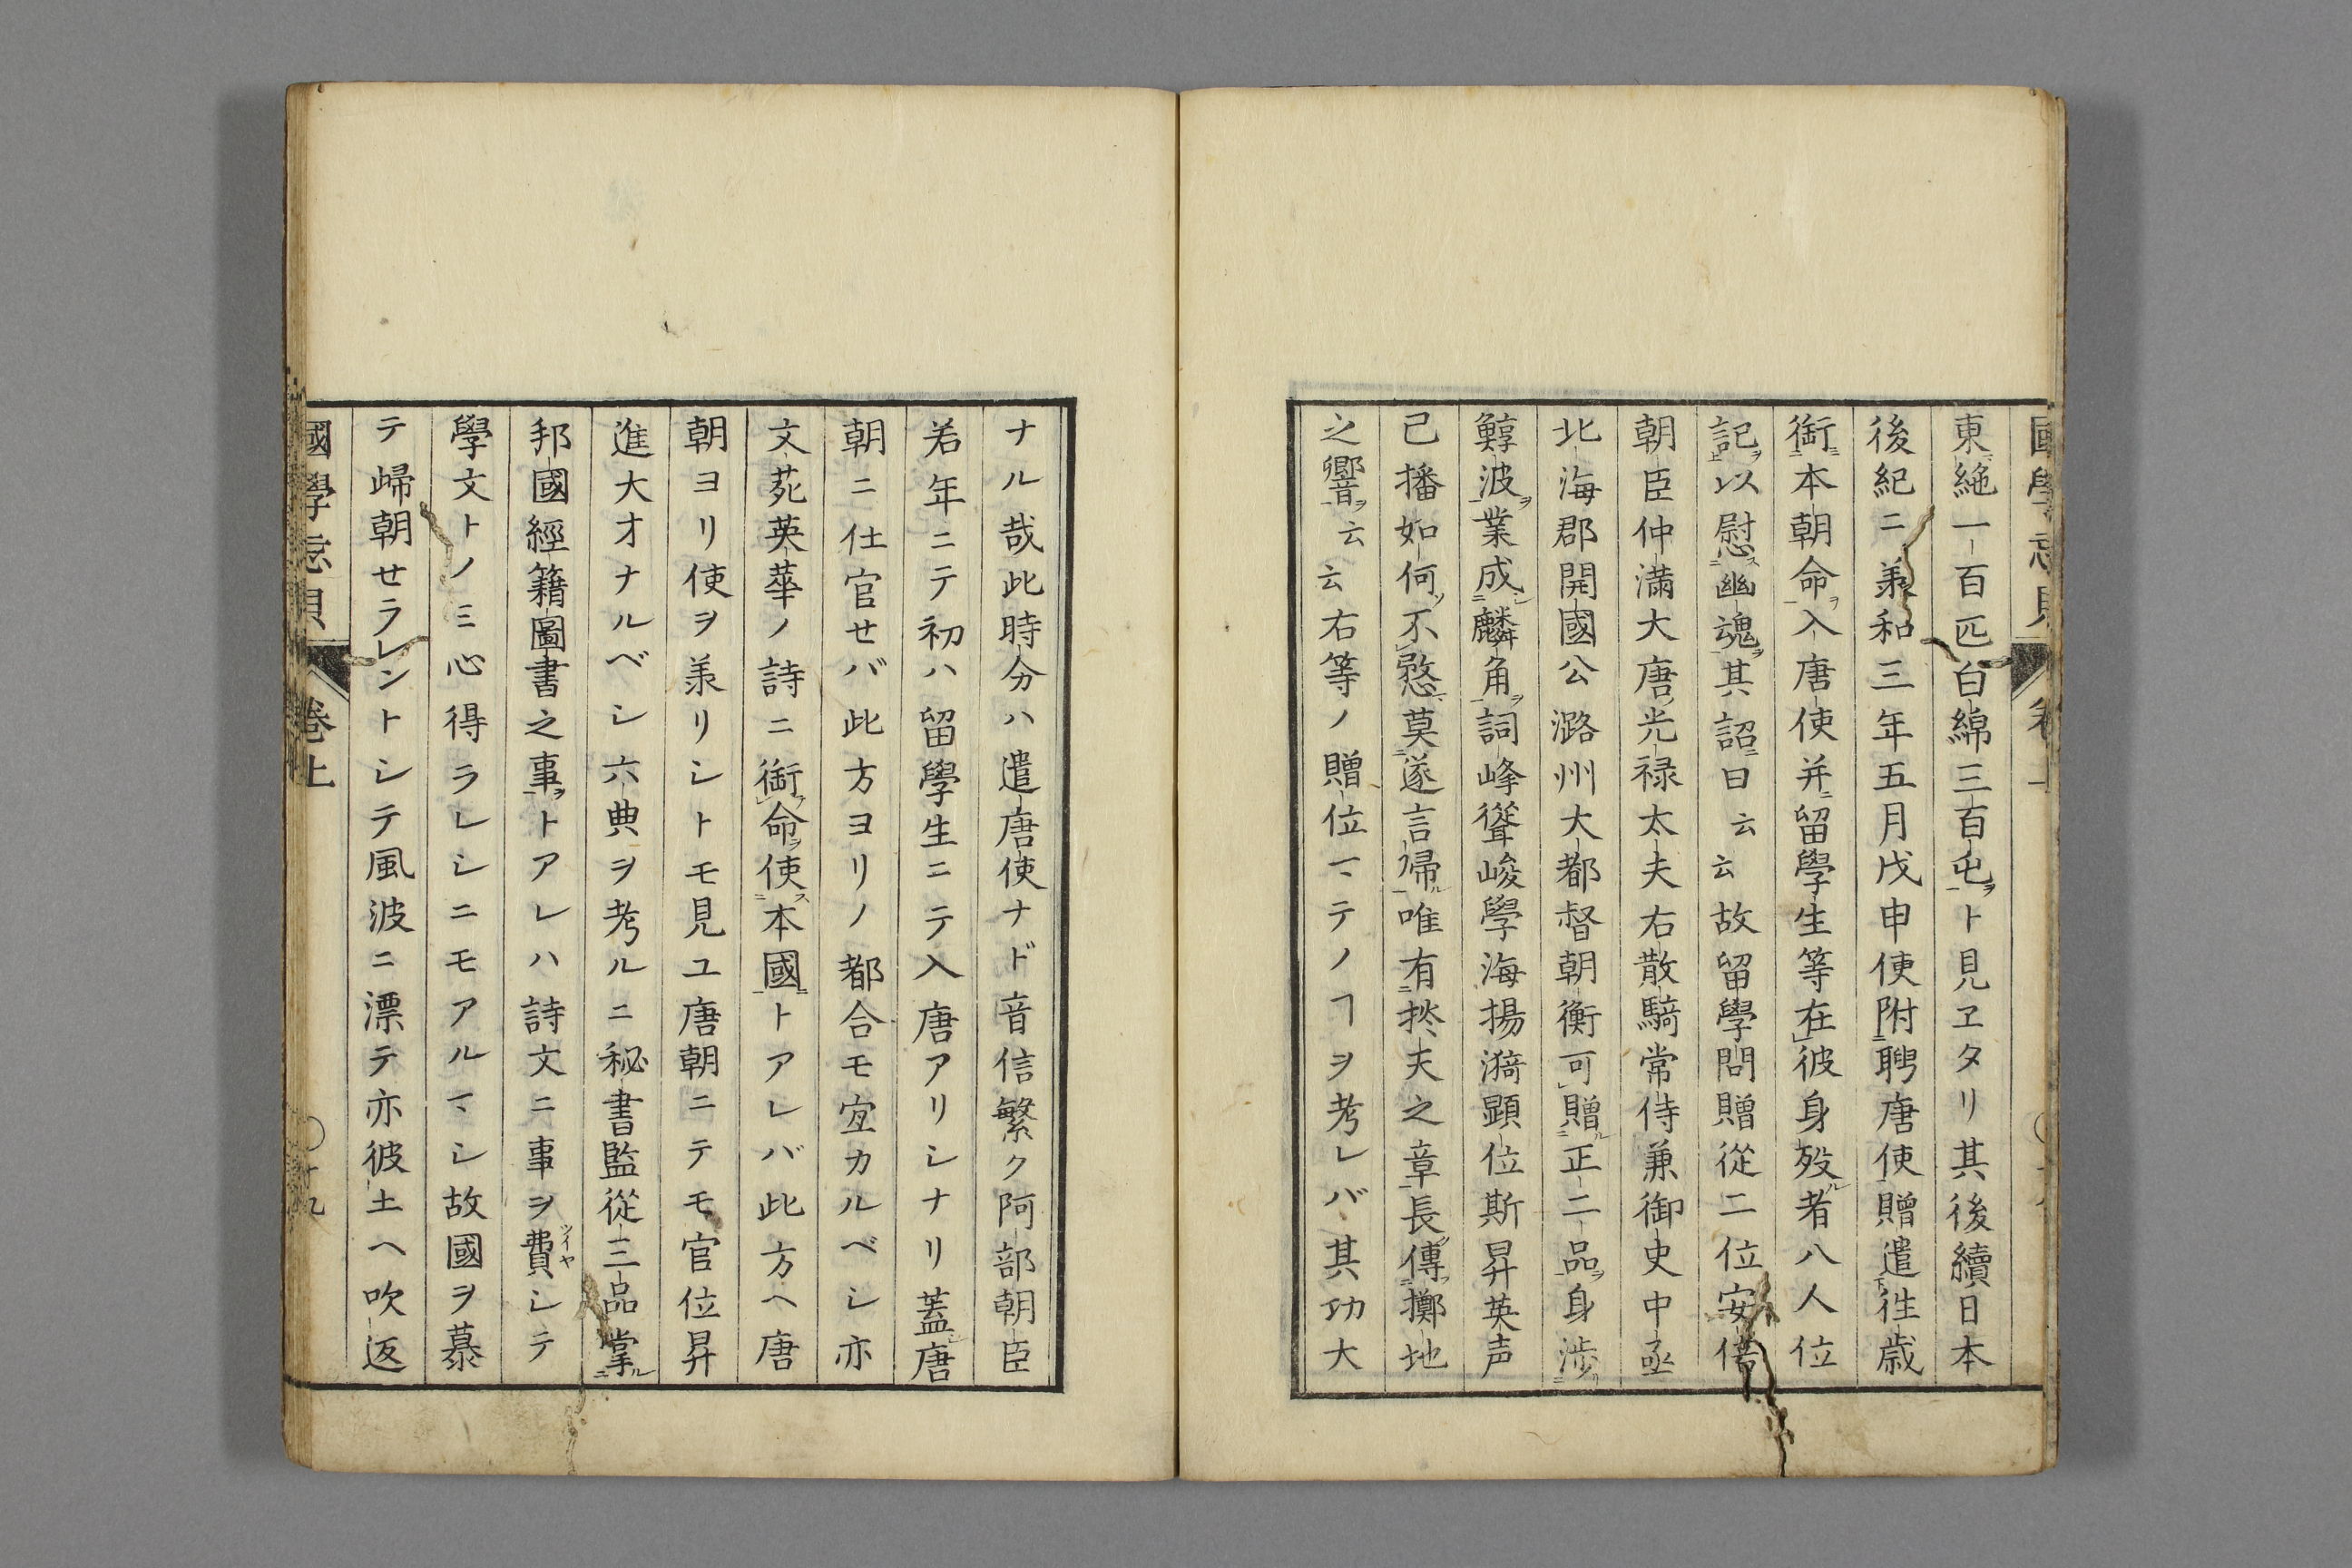 東絁一百匹白綿三百屯ヲト見ヱタリ其後續日本
後紀ニ羕和三年五月戊申使附聘唐使贈遣徃歳
銜本朝命入唐使并留學生等在彼身歿者八人位
記以慰幽魂其詔曰云云故留學問贈從二位安倍
朝臣仲滿大唐光禄太夫右散騎常侍兼御史中丞
北海郡開國公潞州大都督朝衡可贈正二品身渉
鯙波業成麟角詞峰聳峻學海揚漪顕位斯昇英声
已播如何不憗莫遂言歸唯有掞天之章長傳擲地
之響云云右等ノ贈位マテノヿヲ考レバ其功大
ナル哉此時分ハ遣唐使ナド音信繁ク阿部朝臣
若年ニテ初ハ留學生ニテ入唐アリシナリ蓋唐
朝ニ仕官せバ此方ヨリノ都合モ宜カルベシ亦
文苑英華ノ詩ニ銜命使本國トアレバ此方ヘ唐
朝ヨリ使ヲ羕リシトモ見ユ唐朝ニテモ官位昇
進大才ナルベシ六典ヲ考ルニ秘書監從三品掌
邦國經籍圖書之事トアレハ詩文ニ事ヲ費シテ
學文トノミ心得ラレシニモアルマシ故國ヲ慕
テ歸朝せラレントシテ風波ニ漂テ亦彼土ヘ吹返
國學忘貝 卷上 〇十九